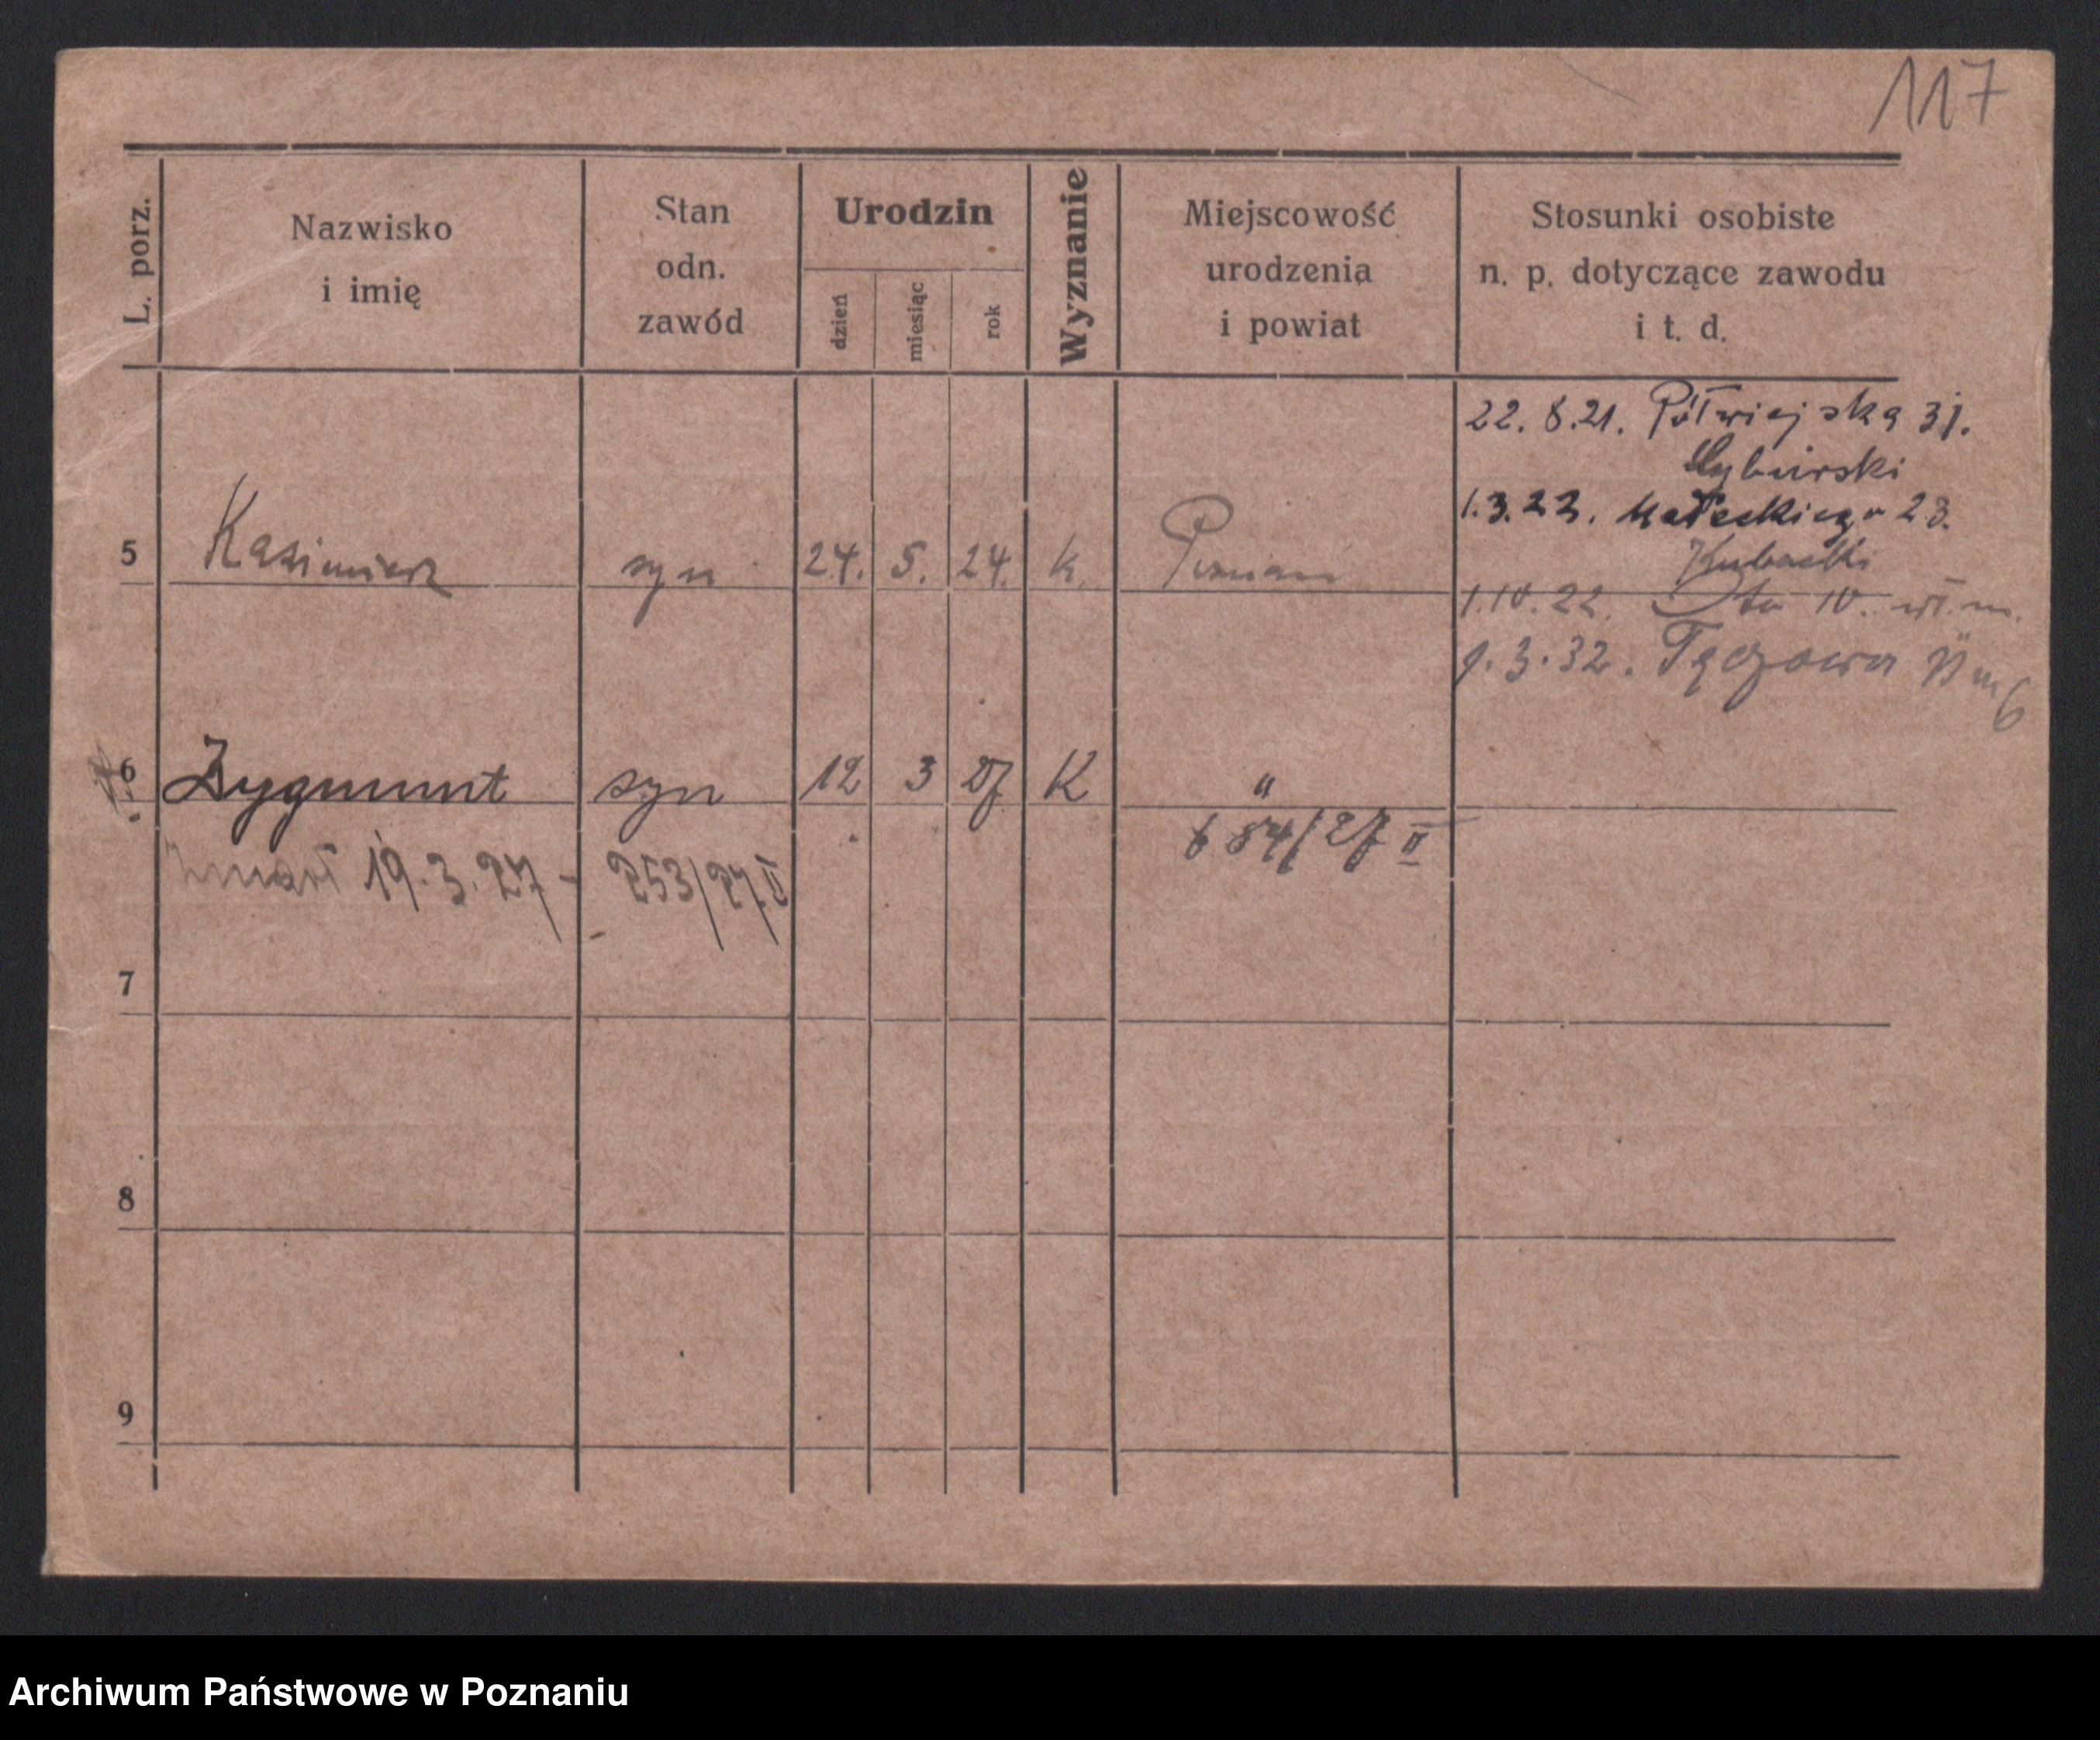 117
L. porz.
Nazwisko
i imię
Stan
odn.
zawód
Urodzin
dzień
miesiąc
rok
Wyznanie
Miejscowość
urodzenia
i powiat
Stosunki osobiste
n. p. dotyczące zawodu
i t. d.
22. 8. 21. Półwiejska 31.
1. 3. 22. Małeckiego 23.
Kubacki
5 Kazimierz syn 24. 5. 24. k. Poznań
1. IV. 22. IV. wł. m.
1. 3. 32. Tęczowa 11 m 6
6 Zygmunt syn 12 3 27 K "
684/27 II
Zmarł 19. 3. 27 - 253/27 II
7
8
9
Archiwum Państwowe w Poznaniu